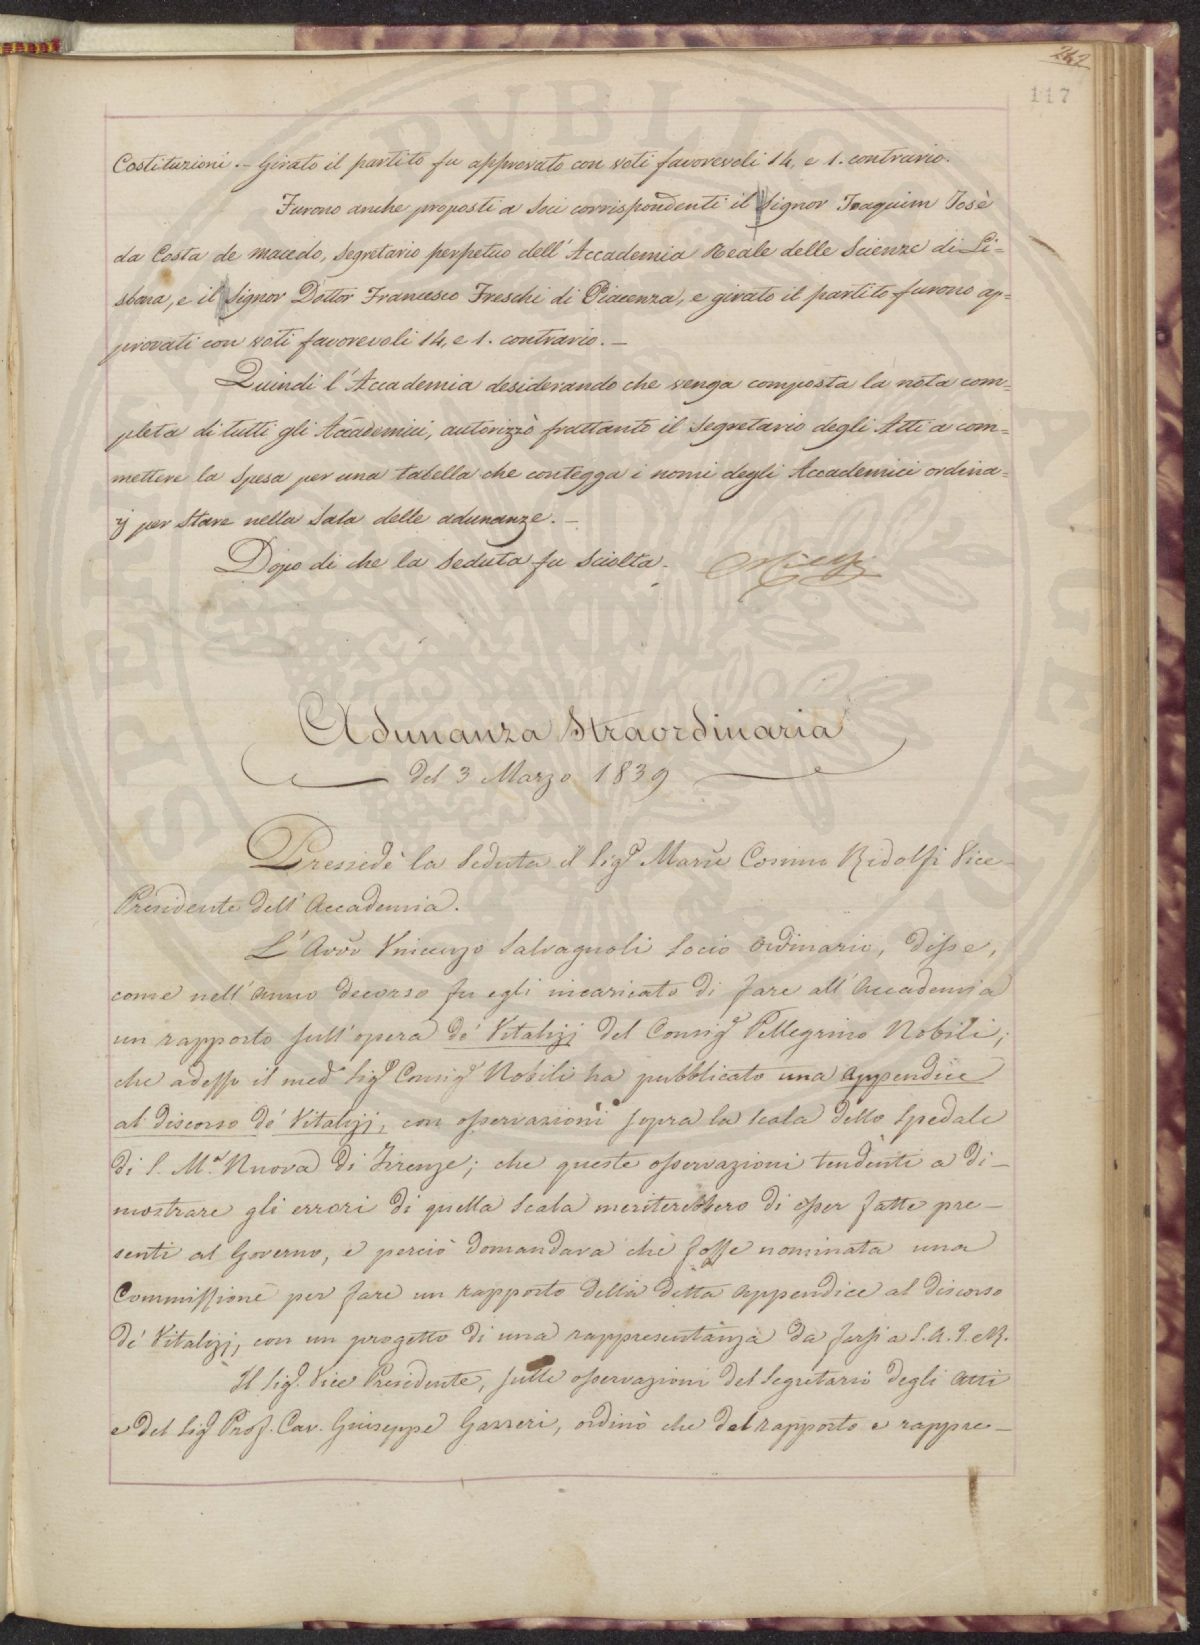 242
117
Costituzioni. – Girato il partito fu approvato con voti favorevoli 14, e 1. contrario.
Furono anche proposti a Soci corrispondenti il Signor Joaquim Josè
da Costa de Macedo, Segretario perpetuo dell'Accademia Reale delle Scienze di Li=
sbona, e il Signor Dottor Francesco Freschi di Piacenza, e girato il partito furono ap=
provati con voti favorevoli 14, e 1. contrario. –
Quindi l'Accademia desiderando che venga composta la nota com=
pleta di tutti gli Accademici, autorizzò frattanto il Segretario degli Atti a com=
mettere la Spesa per una tabella che contegga i nomi degli Accademici ordina=
rj per stare nella Sala delle adunanze. –
Dopo di che la Seduta fu Sciolta.
Adunanza Straordinaria
del 3 Marzo 1839
Presiedè la Seduta il Sig.r March. Cosimo Ridolfi Vice
Presidente dell'Accademia.
L'Avv. Vincenzo Salvagnoli Socio ordinario, disse,
come nell'anno decorso fu egli incaricato di fare all'Accademia
un rapporto sull'opera de' Vitalizj del Consig.r Pellegrino Nobili;
che adesso il med.o Sig.r Consig.r Nobili ha pubblicato una appendice
al discorso de' Vitalizj, con osservazioni sopra la scala dello Spedale
di S. M.a Nuova di Firenze; che queste osservazioni tendenti a di–
mostrare gli errori di quella Scala meriterebbero di esser fatte pre–
senti al Governo, e perciò domandava che fosse nominata una
Commissione per fare un rapporto della detta appendice al discorso
de' Vitalizj, con un progetto di una rappresentanza da farsi a S. A. I. e R.
Il Sig.r Vice Presidente, sulle osservazioni del Segretario degli Atti
e del Sig.r Prof. Cav. Giuseppe Gazzeri, ordinò che del rapporto e rappre–